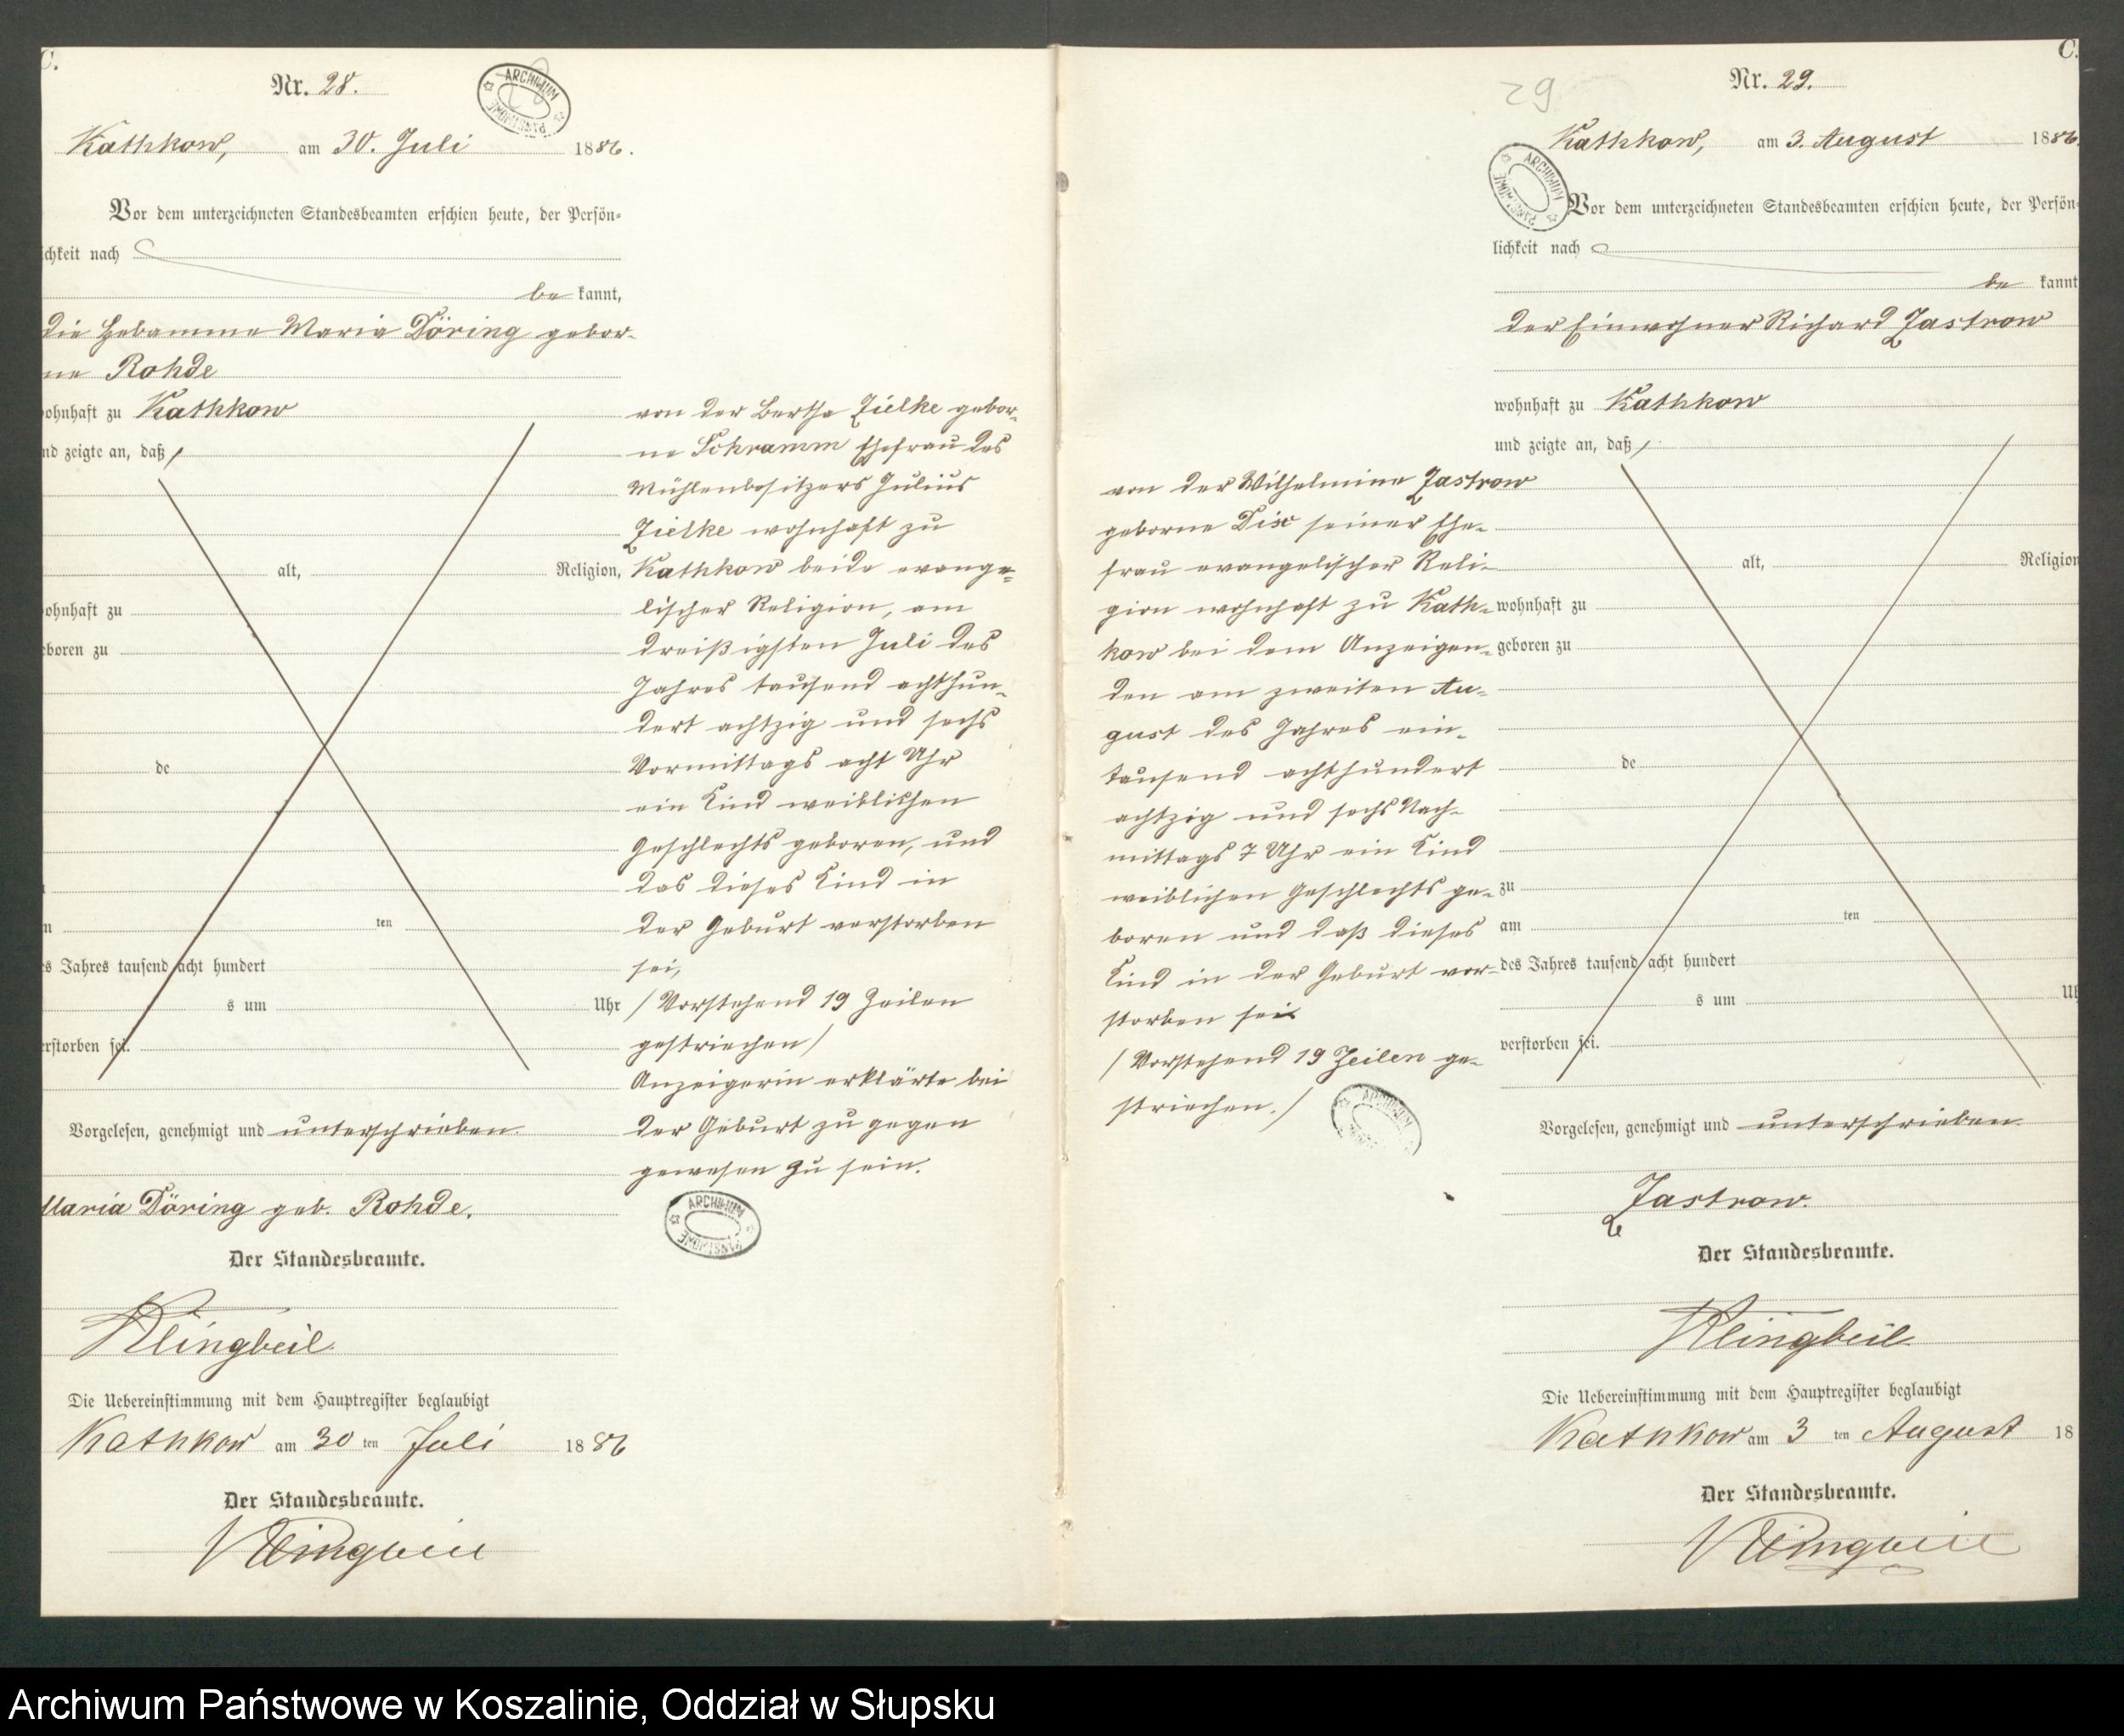 C.
Nr. 28.
ARCHIWUM PAŃSTWOWE
Kathkow, am 30. Juli 1886.
Vor dem unterzeichneten Standesbeamten erschien heute, der Persön-
ichkeit nach
be kannt,
die Hebamme Maria Döring gebor-
ne Rohde
ohnhaft zu Kathkow
nd zeigte an, daß /
alt, Religion,
ohnhaft zu
eboren zu
de
n
ten
es Jahres tausend acht hundert
s um Uhr
erstorben sei.
von der Bertha Zielke gebor-
ne Schramm Ehefrau des
Mühlenbesitzers Julius
Zielke wohnhaft zu
Kathkow beide evange-
lischer Religion, am
dreißigsten Juli des
Jahres tausend achthun-
dert achtzig und sechs
Vormittags acht Uhr
ein Kind weiblichen
Geschlechts geboren, und
das dieses Kind in
der Geburt verstorben
sei,
/ Vorstehend 19 Zeilen
gestrichen /
Anzeigerin erklärte bei
der Geburt zu gegen
gewesen zu sein.
ARCHIWUM PAŃSTWOWE
Vorgelesen, genehmigt und unterschrieben
Maria Döring geb. Rohde.
Der Standesbeamte.
Klingbeil
Die Uebereinstimmung mit dem Hauptregister beglaubigt
Kathkow am 30 ten Juli 1886
Der Standesbeamte.
Klingbeil
C.
29
Nr. 29.
ARCHIWUM PAŃSTWOWE
Kathkow, am 3. August 1886.
Vor dem unterzeichneten Standesbeamten erschien heute, der Persön-
lichkeit nach
be kannt
der Einwohner Richard Zastrow
wohnhaft zu Kathkow
und zeigte an, daß /
alt, Religion
wohnhaft zu
geboren zu
de
zu
am ten
des Jahres tausend acht hundert
s um Uh
verstorben sei.
von der Wilhelmine Zastrow
geborne Dix seiner Ehe-
frau evangelischer Reli-
gion wohnhaft zu Kath-
kow bei dem Anzeigen-
den am zweiten Au-
gust des Jahres ein-
tausend achthundert
achtzig und sechs Nach-
mittags 7 Uhr ein Kind
weiblichen Geschlechts ge-
boren und daß dieses
Kind in der Geburt ver-
storben sei
/ Vorstehend 19 Zeilen ge-
strichen. /
ARCHIWUM
Vorgelesen, genehmigt und unterschrieben
Zastrow.
Der Standesbeamte.
Klingbeil
Die Uebereinstimmung mit dem Hauptregister beglaubigt
Kathkow am 3 ten August 18
Der Standesbeamte.
Klingbeil
Archiwum Państwowe w Koszalinie, Oddział w Słupsku